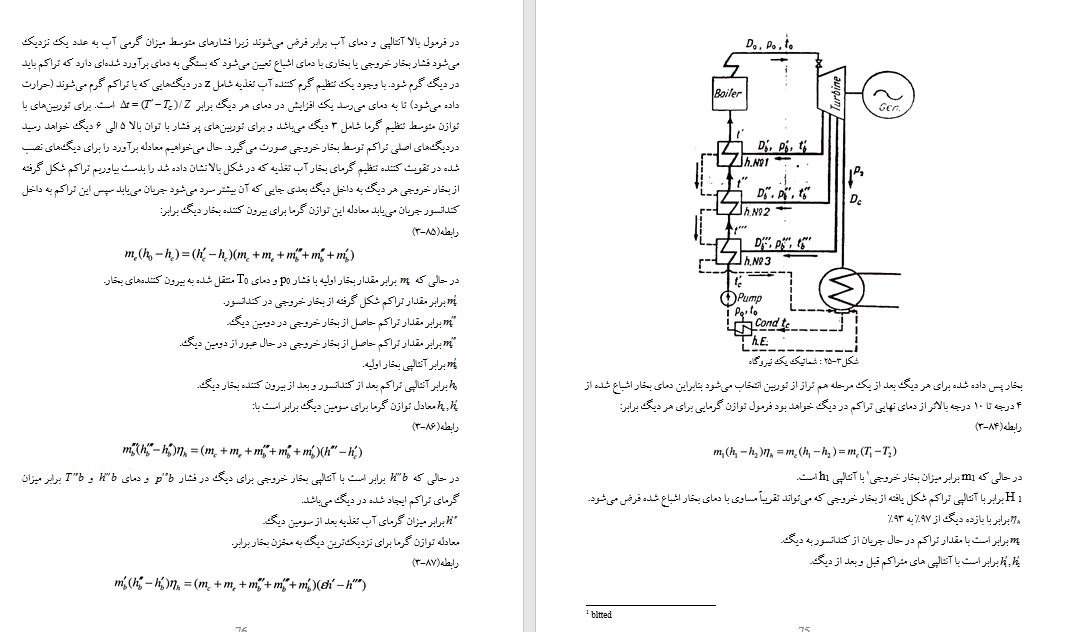 D₀, p₀, t₀
Boiler
Turbine
Gen.
t′
D′b, p′b, t′b
h.№1
p₂
t″
D″b, p″b, t″b
Dc
h.№2
t‴
D‴b, p‴b, t‴b
h.№3
t′c
Pump
p₀, t₀
Cond tc
h.E.
شکل۳-۲۵ : شماتیک یک نیروگاه
بخار پس داده شده برای هر دیگ بعد از یک مرحله هم تراز از توربین انتخاب می‌شود بنابراین دمای بخار اشباع شده از
۴ درجه تا ۱۰ درجه بالاتر از دمای نهایی تراکم در دیگ خواهد بود فرمول توازن گرمایی برای هر دیگ برابر:
رابطه(۸۴-۳)
m₁(h₁ − h₂)ηₕ = m_c(h₁ − h₂) = m_c(T₁ − T₂)
در حالی که m₁ برابر میزان بخار خروجی¹ با آنتالپی h₁ است.
H₁ برابر با آنتالپی تراکم شکل یافته از بخار خروجی که می‌تواند تقریباً مساوی با دمای بخار اشباع شده فرض می‌شود.
ηₕ برابر با بازده دیگ از ۹۷٪ به ۹۳٪
برابر است با مقدار تراکم در حال جریان از کندانسور به دیگ.
برابر است با آنتالپی های متراکم قبل و بعد از دیگ.
¹ bltted
75
در فرمول بالا آنتالپی و دمای آب برابر فرض می‌شوند زیرا فشارهای متوسط میزان گرمی آب به عدد یک نزدیک
می‌شود فشار بخار خروجی یا بخاری با دمای اشباع تعیین می‌شود که بستگی به دمای برآورد شده‌ای دارد که تراکم باید
در دیگ گرم شود. با وجود یک تنظیم گرم کننده آب تغذیه شامل z در دیگ‌هایی که با تراکم گرم می‌شوند (حرارت
داده می‌شود) تا به دمای می‌رسد یک افزایش در دمای هر دیگ برابر Δt = (T′ − T_c) / Z است. برای توربین‌های با
توازن متوسط تنظیم گرما شامل ۳ دیگ می‌باشد و برای توربین‌های پر فشار با توان بالا ۵ الی ۶ دیگ خواهد رسید
دردیگ‌های اصلی تراکم توسط بخار خروجی صورت می‌گیرد. حال می‌خواهیم معادله برآورد را برای دیگ‌های نصب
شده در تقویت کننده تنظیم گرمای بخار آب تغذیه که در شکل بالا نشان داده شد را بدست بیاوریم تراکم شکل گرفته
از بخار خروجی هر دیگ به داخل دیگ بعدی جایی که آن بیشتر سرد می‌شود جریان می‌یابد سپس این تراکم به داخل
کندانسور جریان می‌یابد معادله این توازن گرما برای بیرون کننده بخار دیگ برابر:
رابطه(۸۵-۳)
m_e(h₀ − h_c) = (h′_c − h_c)(m_c + m_e + m‴_b + m″_b + m′_b)
در حالی که برابر مقدار بخار اولیه با فشار p₀ و دمای T₀ منتقل شده به بیرون کننده‌های بخار.
برابر مقدار تراکم شکل گرفته از بخار خروجی در کندانسور.
برابر مقدار تراکم حاصل از بخار خروجی در دومین دیگ.
برابر مقدار تراکم حاصل از بخار خروجی در حال عبور از دومین دیگ.
برابر آنتالپی بخار اولیه.
برابر آنتالپی تراکم بعد از کندانسور و بعد از بیرون کننده بخار دیگ.
معادل توازن گرما برای سومین دیگ برابر است با:
رابطه(۸۶-۳)
m‴_b(h‴_b − h″_b)ηₕ = (m_c + m_e + m‴_b + m″_b + m′_b)(h‴ − h′_c)
در حالی که h‴b برابر است با آنتالپی بخار خروجی برای دیگ در فشار p‴b و دمای T‴b و h‴b برابر میزان
گرمای تراکم ایجاد شده در دیگ می‌باشد.
برابر میزان گرمای آب تغذیه بعد از سومین دیگ.
معادله توازن گرما برای نزدیک‌ترین دیگ به مخزن بخار برابر.
رابطه(۸۷-۳)
76